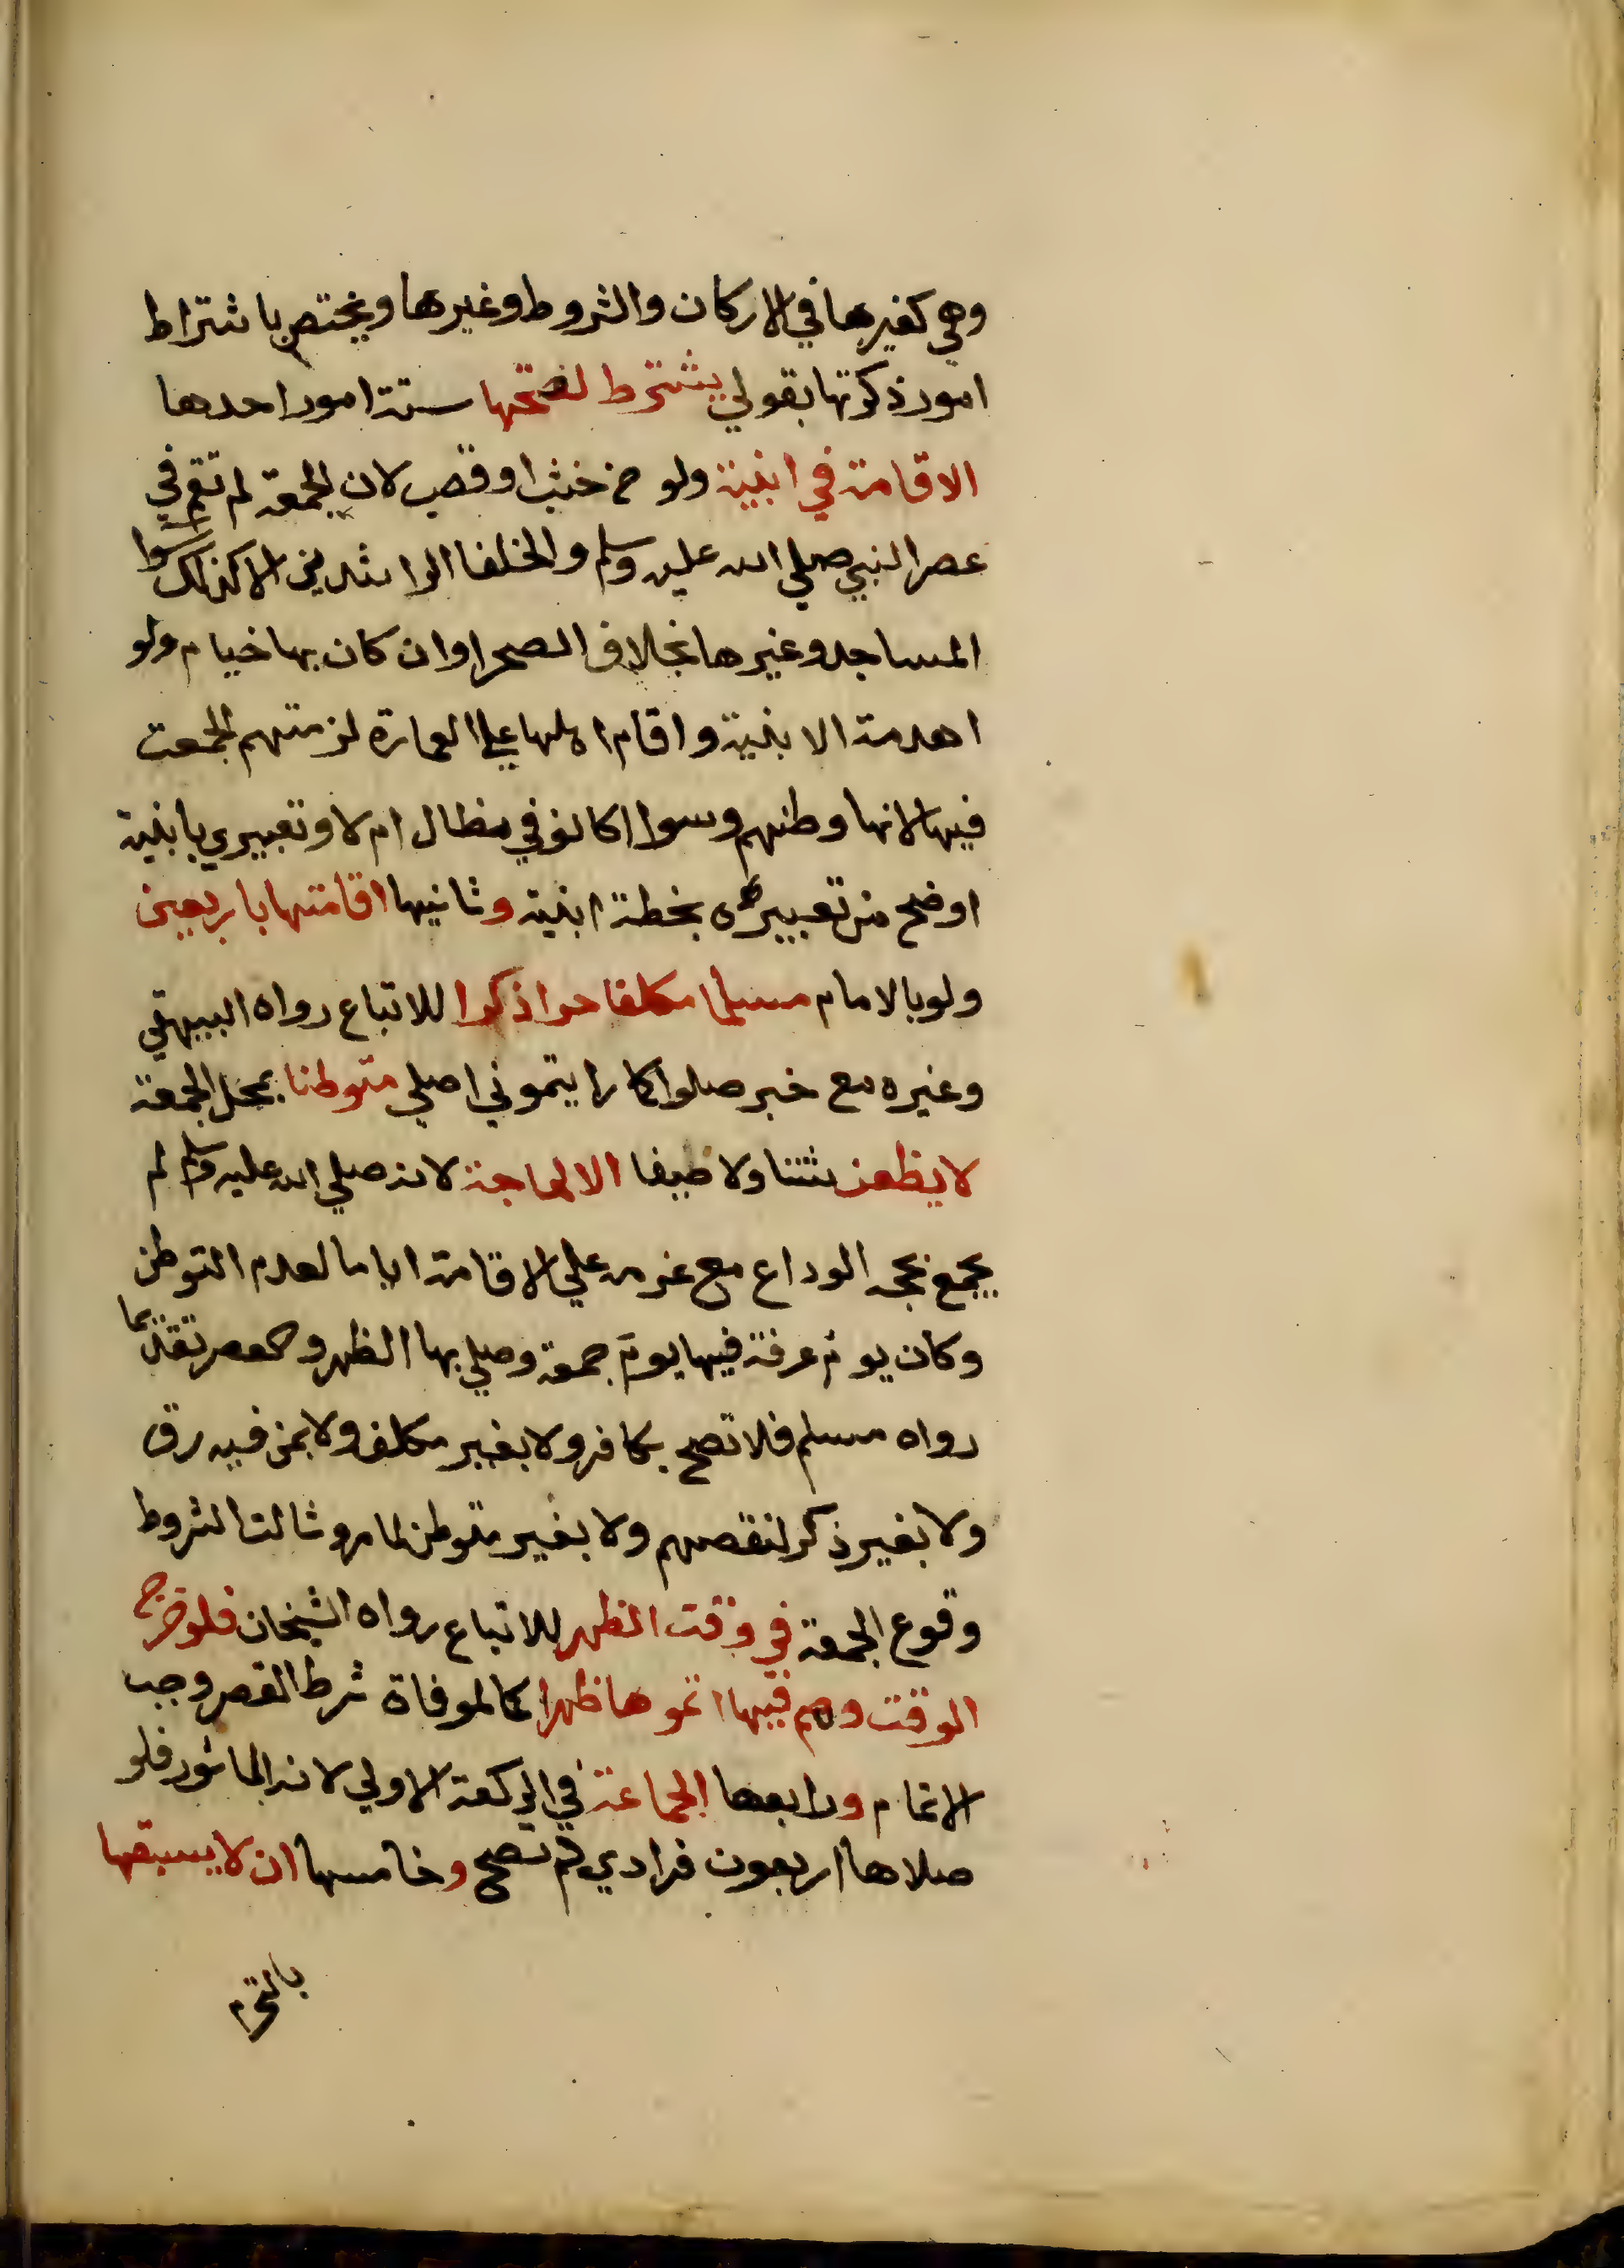 وهي كغيرها في الاركان والشروط وغيرها ويختص باشتراط
امور ذكرتها بقولي يشترط لصحتها ستة امور احدها
الاقامة في ابنية ولو من خشب او قصب لان الجمعة لم تقم في
عصر النبي صلي الله عليه وسلم والخلفا الراشدين الا كذلك سوا
المساجد وغيرها بخلاف الصحرا وان كان بها خيام ولو
اهدمة الابنية واقام اهلها علي العمارة لزمتهم الجمعت
فيها لانها وطنهم وسوا اكانو في مظال ام لا وتعبيري بابنية
اوضح من تعبيره بخطة ابنية وثانيها اقامتها باربعين
ولو بالامام مسلما مكلفا حرا ذكرا للاتباع رواه البيهقي
وغيره مع خبر صلوا كما رايتموني اصلي متوطنا بمحل الجمعة
لا يظعن شتنا ولا صيفا الا لحاجة لانه صلي الله عليه وسلم لم
يجمع بحجه الوداع مع عزمه علي الاقامة اياما لعدم التوطن
وكان يوم عرفة فيها يوم جمعة وصلي بها الظهر والعصر تقديما
رواه مسلم فلا تصح بكافر ولا بغير مكلف ولا بمن فيه رق
ولا بغير ذكر لنقصهم ولا بغير متوطن لما مر وثالث الشروط
وقوع الجمعة في وقت الظهر للاتباع رواه الشيخان فلو خرج
الوقت وهم فيها اتموها ظهرا كما لو فات شرط القصر وجب
الاتمام ورابعها الجماعة في الركعة الاولي لانه الماثور فلو
صلاها اربعون فرادي لم تصح وخامسها ان لا يسبقها
بالتحرم